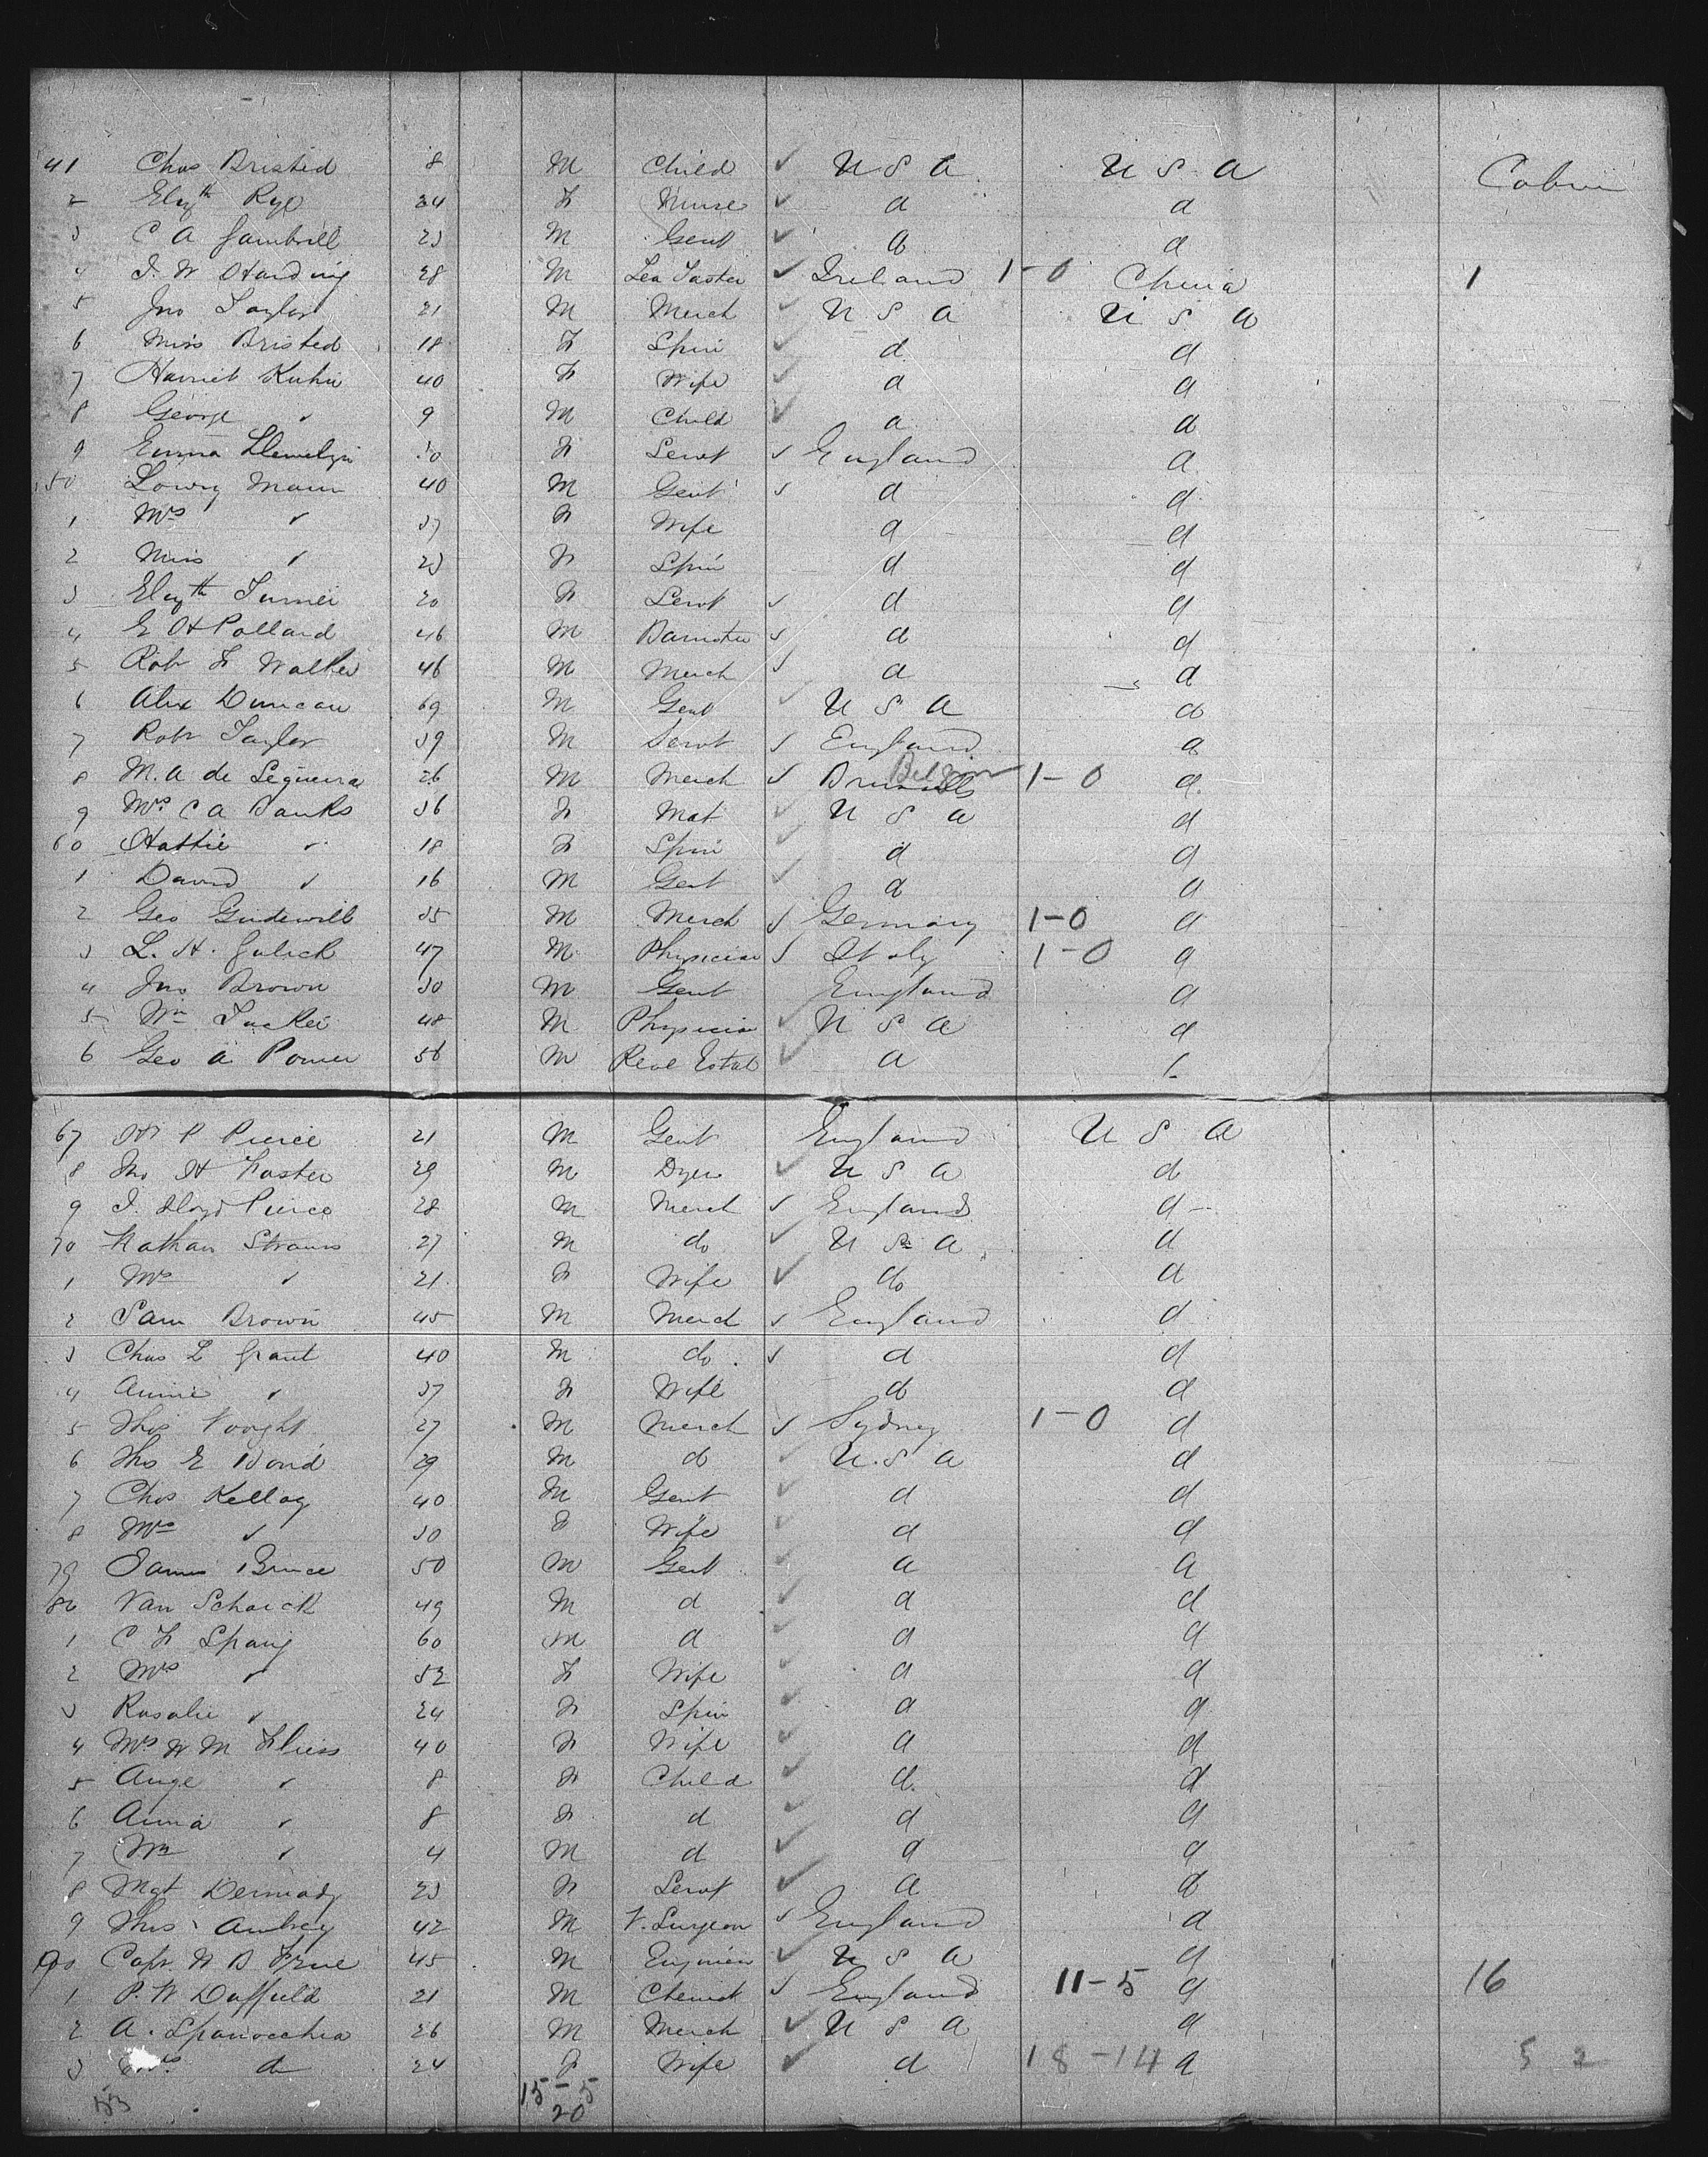 41 Chas Bristed 8 M Child ✓ U S A U S A Cabin
2 Elizth Rye 24 F Nurse ✓ d d
3 C A Gambrill 23 M Gent ✓ d d
4 J. W Harding 28 M Tea Taster ✓ Ireland 1-0 China 1
5 Jno Taylor 21 M Merch ✓ U S A U S A
6 Miss Bristed 18 F Spin ✓ d d
7 Harriet Kuhn 40 F Wife ✓ d d
8 George " 9 M Child ✓ d d
9 Emma Llewelyn 30 F Servt ✓ England d
50 Lowry Mann 40 M Gent ✓ d d
1 Mrs " 37 F Wife d d
2 Miss " 23 F Spin d d
3 Elizth Turner 20 F Servt ✓ d d
4 E H Pollard 46 M Barrister ✓ d d
5 Robt F Walker 46 M Merch ✓ d d
6 Alex Duncan 69 M Gent ✓ U S A d
7 Robt Taylor 39 M Servt ✓ England d
8 M. A de Sequeira 26 M Merch ✓ Brussells Belgium 1-0 d
9 Mrs C A Banks 36 F Mat ✓ U S A d
60 Hattie " 18 F Spin ✓ d d
1 David " 16 M Gent ✓ d d
2 Geo 35 M Merch ✓ Germany 1-0 d
3 L. H. Gulick 47 M Physician ✓ Italy 1-0 d
4 Jno Brown 30 M Gent England d
5 Wm Tucker 48 M Physician ✓ U S A d
6 Geo A 56 M Real Estat ✓ d
67 H P Pierce 21 M Gent England U S A
8 Jno H Foster 29 M Dyer ✓ U S A d
9 J. Lloyd Pierce 28 M Merch ✓ England d
70 Nathan Straus 27 M do ✓ U S A d
1 Mrs " 21 F Wife ✓ do d
2 Sam Brown 45 M Merch ✓ England d
3 Chas L Grant 40 M do ✓ d d
4 Annie " 37 F Wife d d
5 Thos Voight 27 M Merch ✓ Sydney 1-0 d
6 Thos E 29 M d ✓ U. S A d
7 Chas Kellog 40 M Gent ✓ d d
8 Mrs " 30 F Wife ✓ d d
79 James Bruce 50 M Gent ✓ d d
80 Van Schaick 49 M d ✓ d d
1 C F Spang 60 M d ✓ d d
2 Mrs " 52 F Wife ✓ d d
3 Rosalie " 24 F Spin ✓ d d
4 Mrs W M Fliess 40 F Wife ✓ d d
5 Ange " 8 F Child ✓ d d
6 Anna " 8 F d ✓ d d
7 Wm " 4 M d ✓ d d
8 Mgt 23 F Servt ✓ d d
9 Thos Aubrey 42 M V. Surgeon ✓ England d
90 Capt. W B Frue 45 M Engineer ✓ U S A d
1 P. W Duffield 21 M Chemist ✓ England 11-5 d 16
2 A. Spanocchia 26 M Merch ✓ U S A d
3 Mrs d 24 F Wife ✓ d 18-14 d 5 2
53 15-5
20